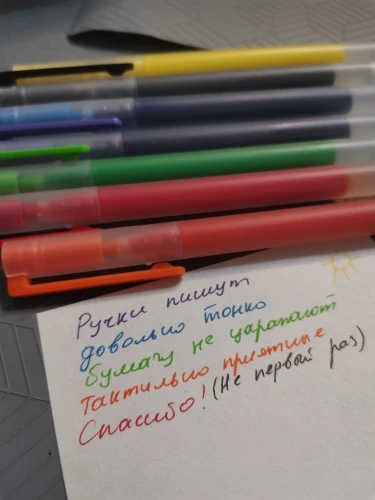 Ручки пишут
довольно тонко
бумагу не царапают
Тактильно приятные
Спасибо! (Не первый раз)